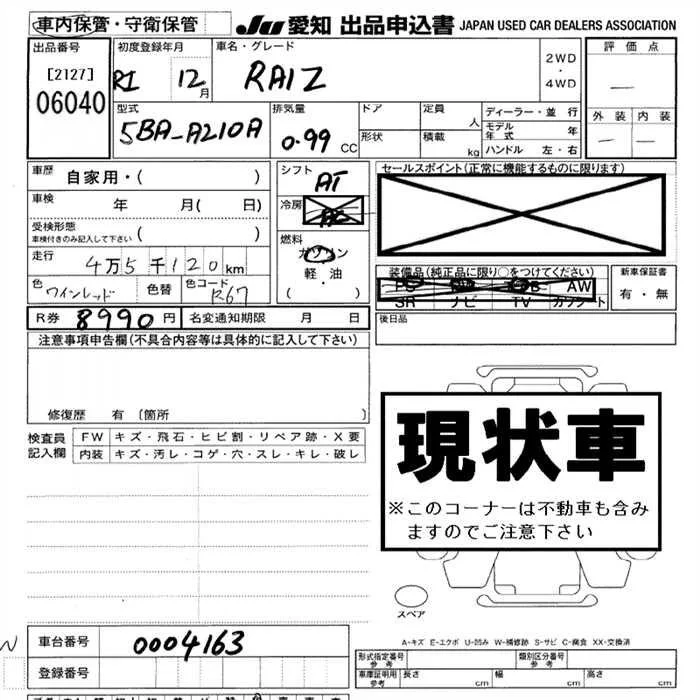 車内保管・守衛保管 JU 愛知 出品申込書 JAPAN USED CAR DEALERS ASSOCIATION
出品番号 初度登録年月 車名・グレード 2WD・4WD 評価点
[2127] R1 12月 RAIZ —
06040 型式 排気量 ドア 定員 人 ディーラー・並行 外装 内装
5BA-A210A 0.99 CC 形状 積載 kg モデル年式 年 — —
ハンドル 左・右
車歴 自家用・( ) シフト AT セールスポイント(正常に機能するものに限ります)
車検 年 月( 日) 冷房 AC
受検形態 ( )
車検付きのみ記入して下さい
燃料 ガソリン
走行 4万5千120km 軽・油 装備品(純正品に限り○をつけてください) 新車保証書
色 ワインレッド 色替 色コード R67 ( ・ ) PS PW ABS AW 有・無
SR ナビ TV カワシート
R券 8990円 名変通知期限 月 日 後日品
注意事項申告欄(不具合内容等は具体的に記入して下さい)
現状車
修復歴 有 [箇所 ]
検査員記入欄 FW キズ・飛石・ヒビ割・リペア跡・X要
内装 キズ・汚レ・コゲ・穴・スレ・キレ・破レ
※このコーナーは不動車も含み
ますのでご注意下さい
スペア
車台番号 0004163 A-キズ E-エクボ U-凹み W-補修跡 S-サビ C-腐食 XX-交換済
形式指定番号 参考 類別区分番号 参考
登録番号 車庫証明用 参考 長さ cm 幅 cm 高さ cm